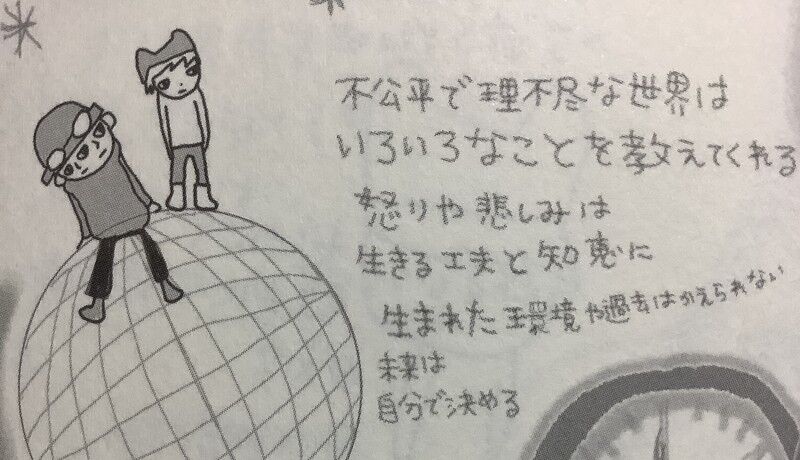 不公平で理不尽な世界は
いろいろなことを教えてくれる
怒りや悲しみは
生きる工夫と知恵に
生まれた環境や過去はかえられない
未来は
自分で決める